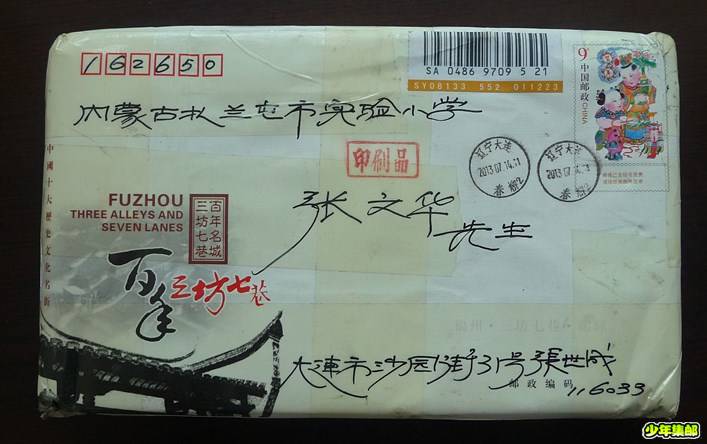 162650
SA 0486 9709 5 21
SY08133 552 011223
9
中国邮政
CHINA
内蒙古扎兰屯市实验小学
印刷品
辽宁大连
2013.07.14.11
春柳2
辽宁大连
春柳2
张文华
先生
中國十大歷史文化名街
FUZHOU
THREE ALLEYS AND
SEVEN LANES
百年名城
三坊七巷
百年三坊七巷
大連市沙园街31号張世成
邮政编码
116033
少年集邮